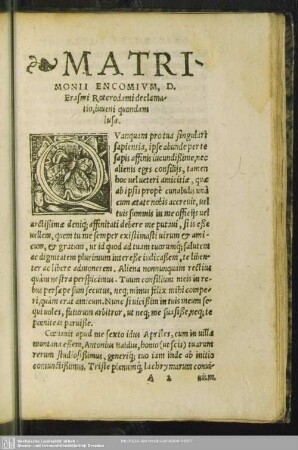 MATRI-
MONII ENCOMIVM, D.
Erasmi Roterodami declama-
tio, iuueni quondam
lusa.
QVanquam pro tua singulari
sapientia, ipse abunde per te
sapis affinis iucundissime, nec
alienis eges consilijs, tamen
hoc uel ueteri amicitiæ, quæ
ab ipsis propè cunabulis unà
cum ætate nobis accreuit, uel
tuis summis in me officijs uel
arctissimæ deniq; affinitati debere me putaui, si is esse
uellem, quem tu me semper existimasti uirum & ami-
cum, & gratum, ut id quod ad tuam tuorumq; salutem
ac dignitatem plurimum interesse iudicassem, te liben-
ter ac libere admonerem. Aliena nonnunquam rectius
quàm nostra perspicimus. Tuum consilium meis in re-
bus persæpe sum secutus, neq; minus felix mihi compe-
ri, quàm erat amicum. Nunc si uicissim in tuis meum se-
qui uoles, futurum arbitror, ut neq; me suasisse, neq; te
pœniteat paruisse.
Cœnauit apud me sexto idus Apriles, cum in uilla
montana essem, Antonius Baldus, homo (ut scis) tuarum
rerum studiosissimus, generiq; tuo iam inde ab initio
coniunctissimus. Triste plenumq; lachrymarum conui-
A 2 uium.